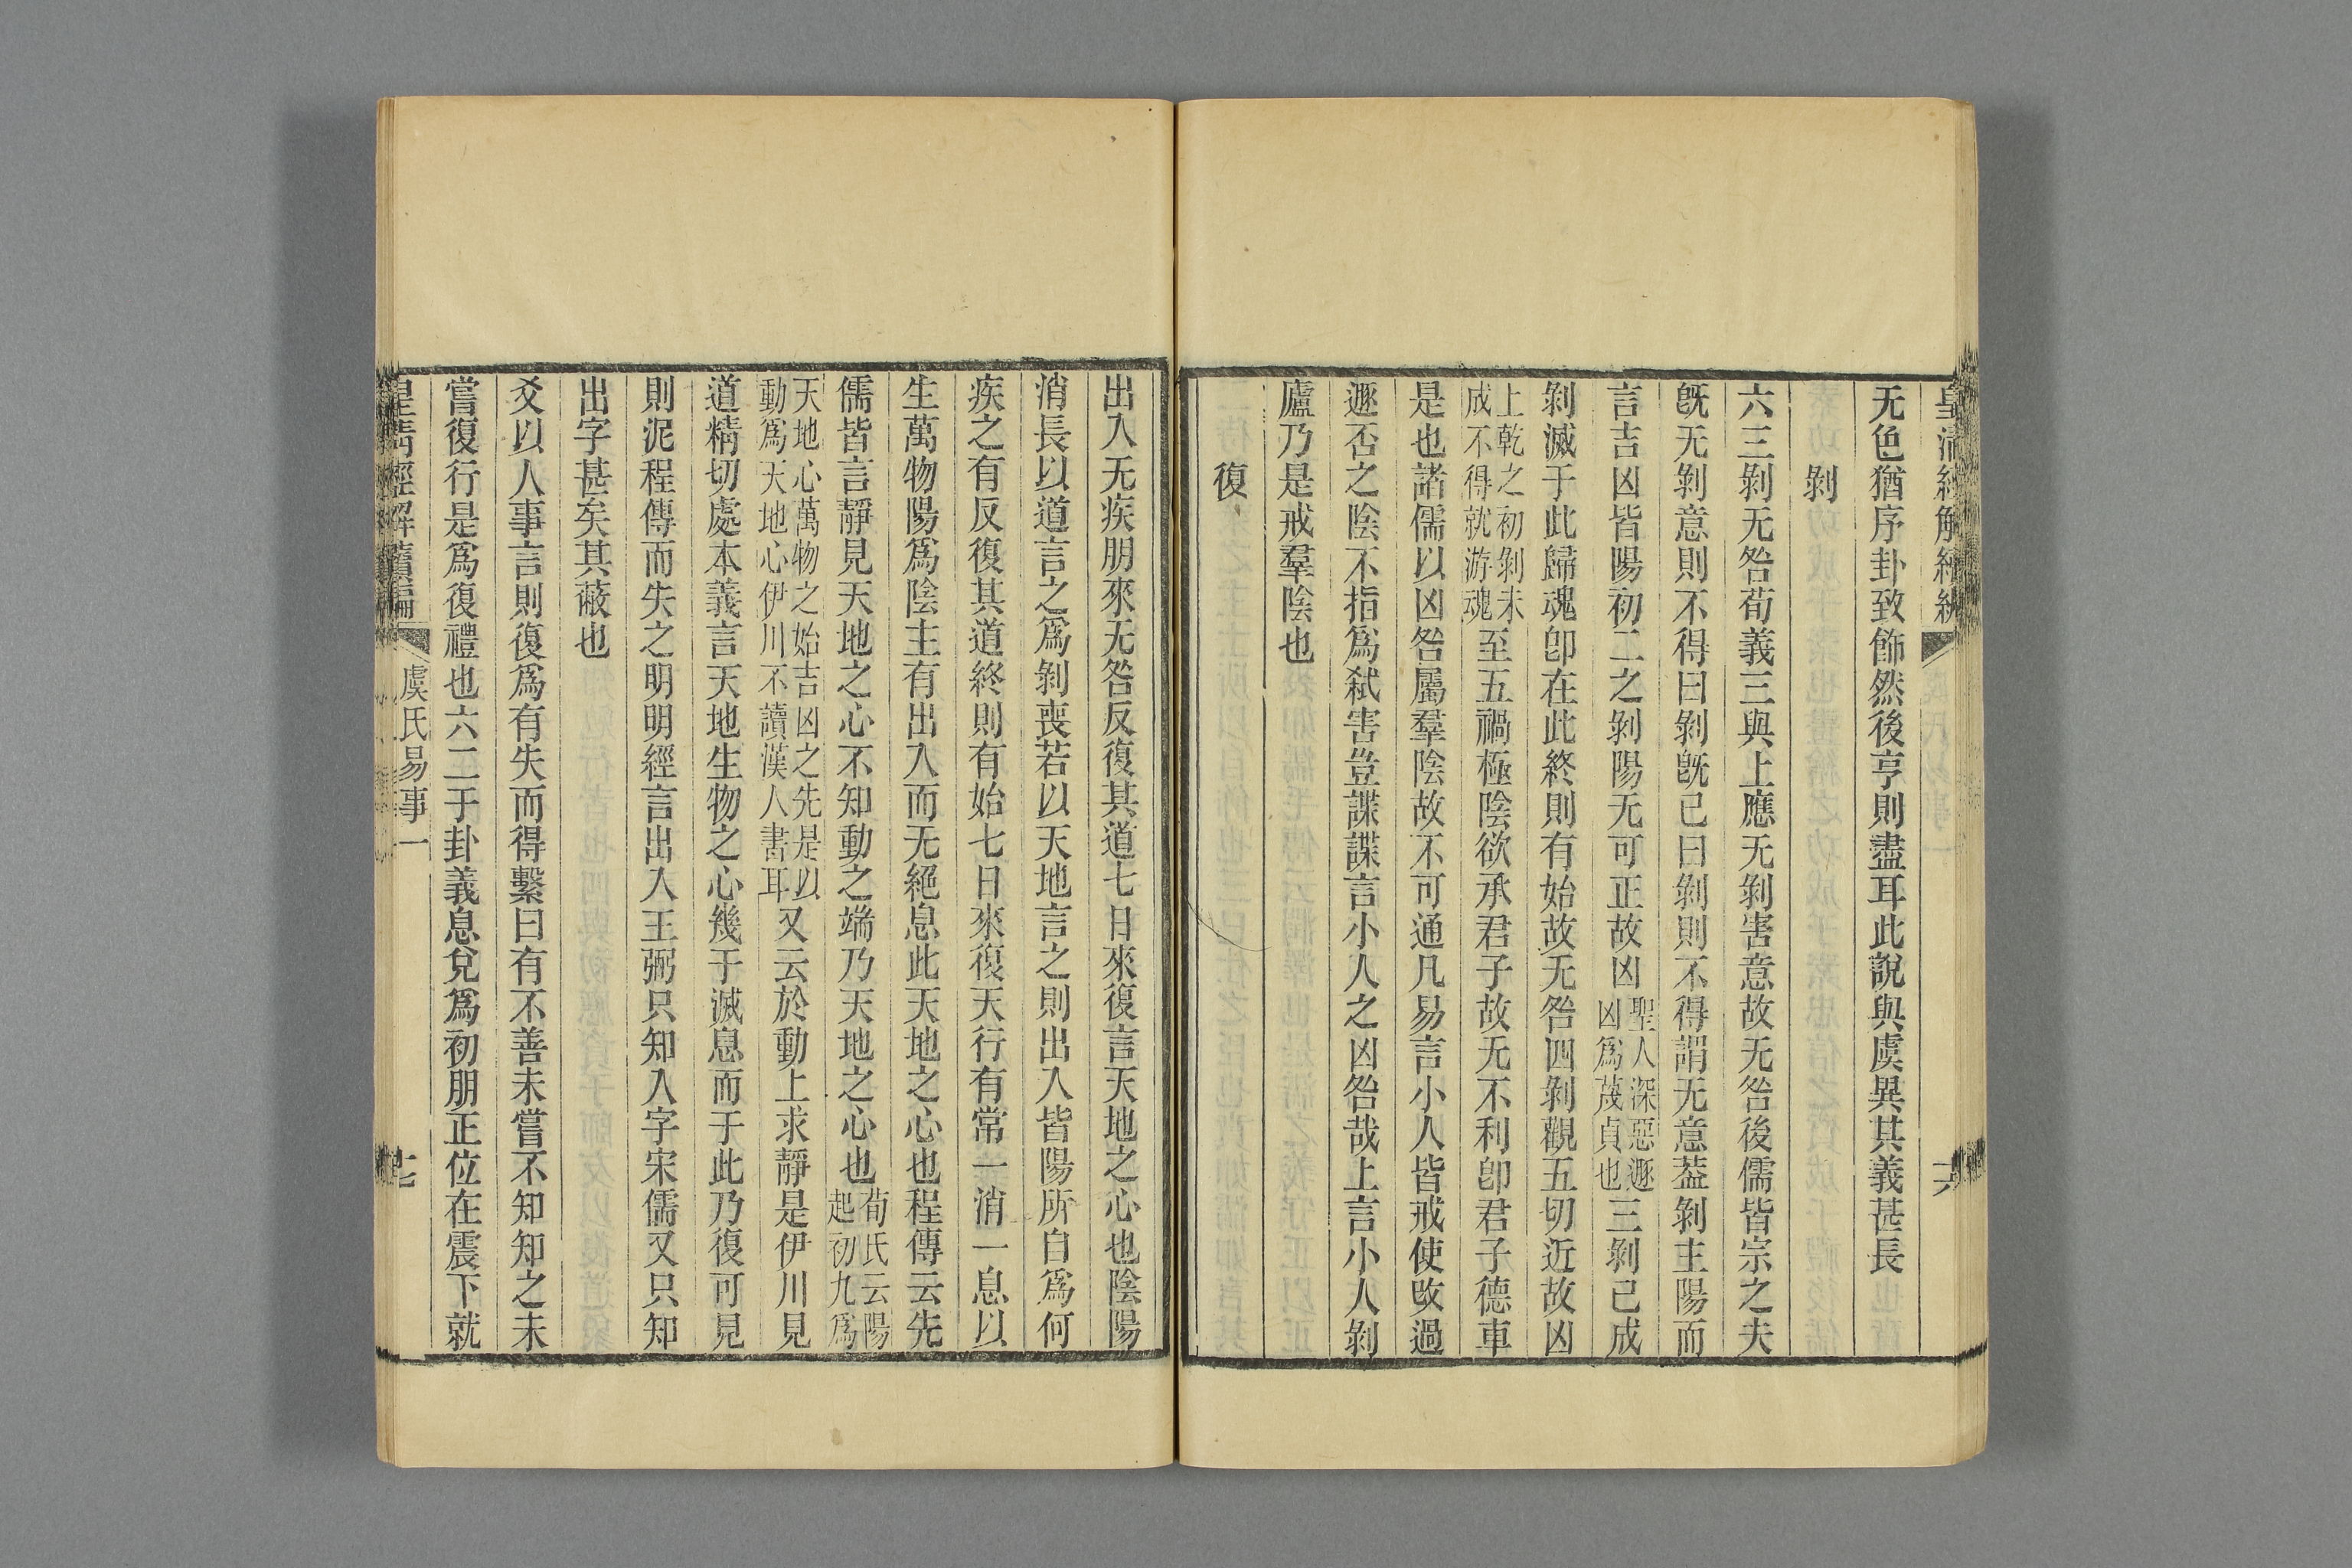 皇清經解續編
六
无色猶序卦致飾然後亨則盡耳此說與虞異其義甚長
剝
六三剝无咎荀義三與上應无剝害意故无咎後儒皆宗之夫
旣无剝意則不得曰剝旣已曰剝則不得謂无意葢剝主陽而
言吉凶皆陽初二之剝陽无可正故凶聖人深惡遯凶爲蔑貞也三剝已成
剝滅于此歸魂卽在此終則有始故无咎四剝觀五切近故凶
上乾之初剝未成不得就游魂至五禍極陰欲承君子故无不利卽君子德車
是也諸儒以凶咎屬羣陰故不可通凡易言小人皆戒使改過
遯否之陰不指爲弒害豈諜諜言小人之凶咎哉上言小人剝
廬乃是戒羣陰也
復
出入无疾朋來无咎反復其道七日來復言天地之心也陰陽
消長以道言之爲剝喪若以天地言之則出入皆陽所自爲何
疾之有反復其道終則有始七日來復天行有常一消一息以
生萬物陽爲陰主有出入而无絕息此天地之心也程傳云先
儒皆言靜見天地之心不知動之端乃天地之心也荀氏云陽起初九爲
天地心萬物之始吉凶之先是以動爲天地心伊川不讀漢人書耳又云於動上求靜是伊川見
道精切處本義言天地生物之心幾于滅息而于此乃復可見
則泥程傳而失之明明經言出入王弼只知入字宋儒又只知
出字甚矣其蔽也
爻以人事言則復爲有失而得繫曰有不善未嘗不知知之未
嘗復行是爲復禮也六二于卦義息兌爲初朋正位在震下就
皇清經解續編
虞氏易事一
七